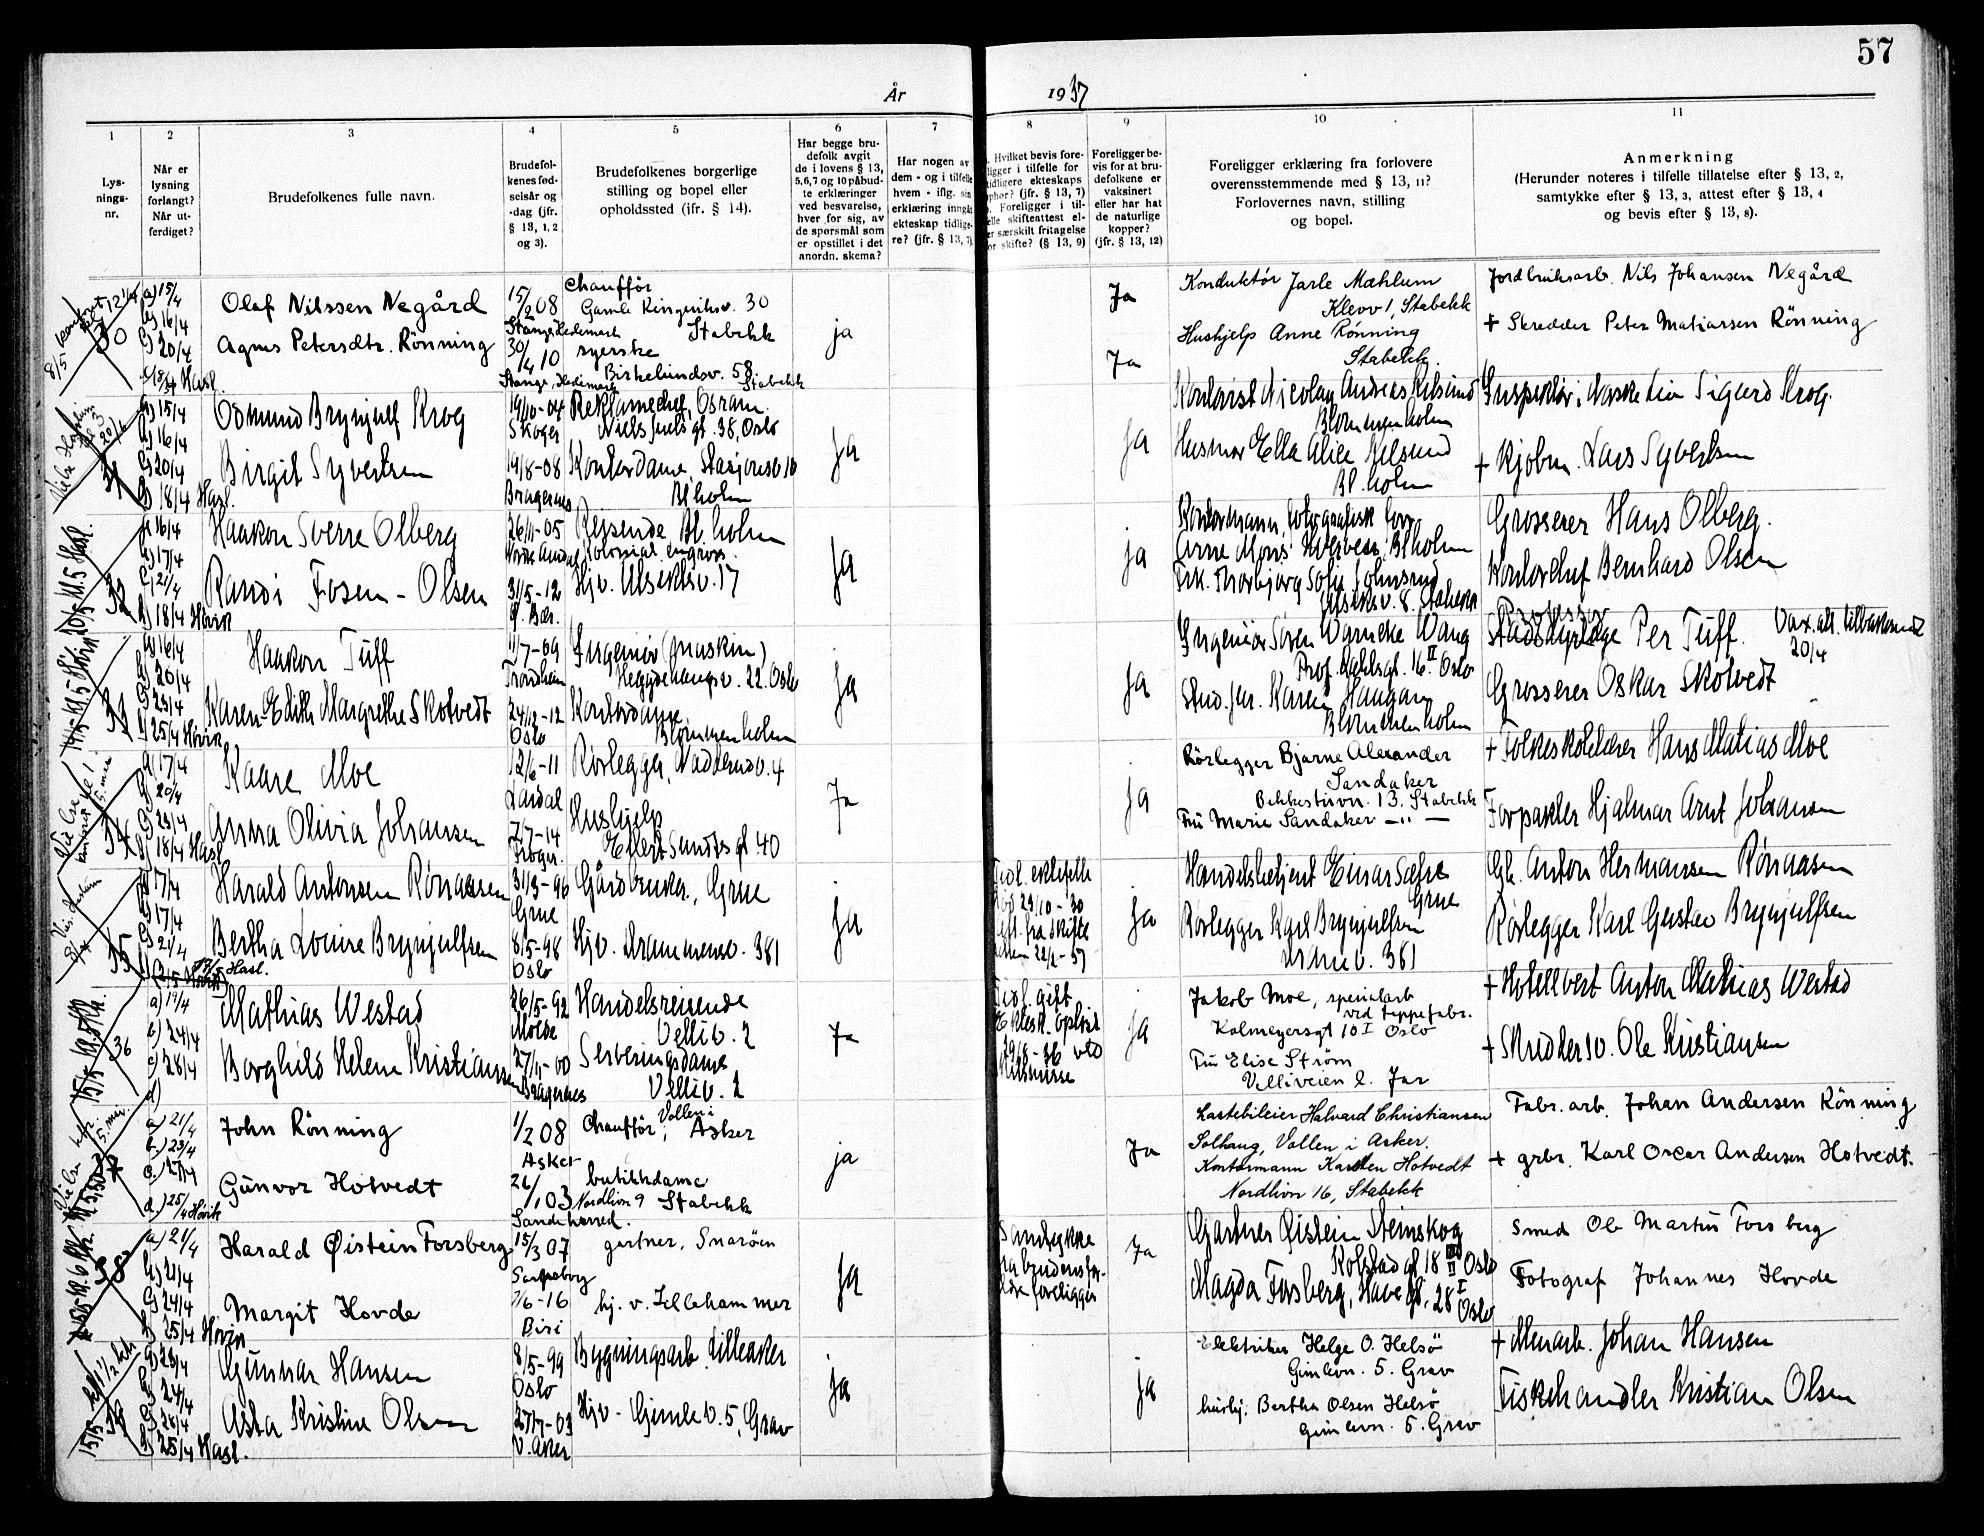 57
År 1937
1
2
3
4
5
6
7
8
9
10
11
Lys-
nings-
nr.
Når er
lysning
forlangt?
Når ut-
ferdiget?
Brudefolkenes fulle navn.
Brudefol-
kenes fød-
selsår og
-dag (jfr.
§ 13, 1, 2
og 3).
Brudefolkenes borgerlige
stilling og bopel eller
opholdssted (ifr. § 14).
Har begge bru-
defolk avgit
de i lovens § 13,
5,6,7 og 10 påbud-
te erklæringer
ved besvarelse,
hver for sig, av
de spørsmål som
er opstillet i det
anordn. skema?
Har nogen av
dem - og i tilfelle
hvem - iflg. sin
erklæring inngåt
ekteskap tidlige-
re? (jfr. § 13, 7).
Hvilket bevis fore-
ligger i tilfelle for
tidligere ekteskaps
ophør? (jfr. § 13, 7)
Foreligger i til-
felle skifteattest el-
er særskilt fritagelse
for skifte? (§ 13, 9)
Foreligger be-
vis for at bru-
defolkene er
vaksinert
eller har hat
de naturlige
kopper?
(jfr. § 13, 12)
Foreligger erklæring fra forlovere
overensstemmende med § 13, 11?
Forlovernes navn, stilling
og bopel.
Anmerkning
(Herunder noteres i tilfelle tillatelse efter § 13, 2,
samtykke efter § 13, 3, attest efter § 13, 4
og bevis efter § 13, 8).
30
a) 15/4
b) 16/4
c) 20/4
Hasl.
Olaf Nilssen Negård
Agnes Petersdtr. Rönning
15/2 08
Stange Hedemark
30/4 10
Stange, Hedemark
Chauffór
Gamle Ringeriksv. 30
Stabekk
syerske
Birkelundsv. 58
Stabekk
ja
Ja
Ja
Konduktør Jarle Mæhlum
Klevv 1, Stabekk
Hushjelp Anne Rønning
Stabekk.
Jordbruksarb. Nils Johansen Negård
+ Skredder Peter Matiassen Rönning
31
a) 15/4
b) 16/4
c) 20/4
d) 18/4 Hasl.
Odmund Brynjulf Krog
Birgit Syvertsen
19/10-04
Skoger
19/8-08
Bragernes
Reklamechef, Osram.
Niels Juels gt. 38, Oslo
Kontordame, Stasjonsv. 10
Bl. holm
Ja
Ja
Kontorist Nicolay Andreas
Blommenholm
Husmor Ella Alice
Bl. holm
Inspektør i Norske Liv Sigurd Krog.
+ Kjøbm. Lars Syvertsen
32
a) 16/4
b) 17/4
c) 21/4
d) 18/4 Høvik
Haakon Sverre Olberg
Randi Fosen - Olsen
26/11-05
31/5-12
Ø. Bær.
Reisende Bl. holm
Kolonial engros.
Hjv. Ulsiktsv. 17
Ja
ja
Arne Moris Bl holm
Frk. Thorbjørg Sofie Johnsrud
Utsiktsv. 8. Stabekk
Grosserer Hans Olberg.
Kontorchef Bernhard Olsen
33
a) 16/4
b) 20/4
c) 23/4
d) 25/4 Høvik
Haakon Tuff
Karen-Edith Margrethe Skotvedt
11/7-09
Trondheim
24/12-12
Oslo
Ingeniør (maskin)
Heggehaugsv. 22. Oslo
Kontordame
Blommenholm
Ja
Ja
Ingeniør Søren Warncke Wang
Prof. Dahlsgt. 16 II Oslo
Stud. jur. Karen Haugan
Blommenholm
Professor
Per Tuff.
Vax. att. tilbakesendt
20/4
Grosserer Oskar Skotvedt
34
a) 17/4
b) 20/4
c) 23/4
d) 18/4 Hasl
Kaare Moe
Anna Olivia Johansen
12/6-11
Lardal
7/7-14
Rørlegger, Nadderudv. 4
Hushjelp
Eilert Sundts gt 40
Ja
Ja
Rörlegger Bjarne Alexander
Sandaker
Bekkestuvn. 13. Stabekk
Fru Marie Sandaker —"—
+ Folkeskolelærer Hans Matias Moe
Forpakter Hjalmar Arnt Johansen
35
a) 17/4
b) 17/4
c) 21/4
Hasl.
Harald Antonsen Rønaasen
Bertha Louise Brynjulfsen
31/3-96
Grue
8/5-98
Oslo
Gårdbruker, Grue
Hjv. Drammensv. 381
Ja
Tidl. ektefelle
død 29/10-'30
att. fra skifte
retten 22/2-37
Ja
Handelsbetjent Einar Sæhre
Grue
Rørlegger Karl Brynjulfsen
Drmsv. 381
Gb. Anton Hermansen Rønaasen
Rørlegger Karl Gustav Brynjulfsen
36
a) 19/4
b) 24/4
c) 28/4
d)
Mathias Westad
Borghild Helene Kristiansen
26/5-92
Molde
27/11-00
Bragernes
Handelsreisende
Velliv. 2
Serveringsdame
Velliv. 2
Ja
Tidl. gift
Ektesk. opløst
29/8-36 ved
Ja
Jakob Moe, spesialarb
ved teppefabr.
Kolmeyersgt 10 I Oslo
Fru Elise Strøm
Velliveien 2. Jar
+ Hotellvert Anton Mathias Westad
+ Skredders v. Ole Kristiansen
37
a) 21/4
b.) 23/4
c.) 27/4
d.) 25/4 Høvik
John Rönning
Gunvor Hotvedt
1/2 08
Asker
26/1 03
Sandeherred.
Chauffór, Vollen i
Asker
butikkdame
Nordlivn 9 Stabekk
ja
Ja
Lastebileier Halvard Christiansen
Solhaug, Vollen i Asker.
Kontormann Karsten Hotvedt
Nordlivn 16, Stabekk
Fabr. arb. Johan Andersen Rönning
+ grbr. Karl Oscar Andersen Hotvedt.
38
a.) 21/4
b) 21/4
c) 24/4
d) 25/4 Høvik
Harald Øistein Forsberg
Margit Hovde
15/3 07
Sarpsborg
7/6-16
Biri
gartner, Snarøen
hj. v. Lillehammer
Ja
Samtykke
fra brudens for-
eldre foreligger
Ja
Gartner Øistein Steinskog
Kolstadgt 18 Oslo
Magda Forsberg, Havegt. 28 I
Oslo
Smed Ole Martin Forsberg
Fotograf Johannes Hovde
39
a) 23/4
b) 24/4
c) 28/4
d) 25/4 Hasl.
Gunnar Hansen
Asta Kristine Olsen
8/5-99
Oslo
27/7-03
V. Aker
Bygningsarb. Lilleaker
Hjv - Gimlev. 5, Grav
Ja
Ja
Elektriker Helge O. Helsö
Gimlevn. 5. Grav
husbj. Bertha Olsen Helsö
Gimlevn. 5. Grav
+ Murarb. Johan Hansen
Fiskehandler Kristian Olsen